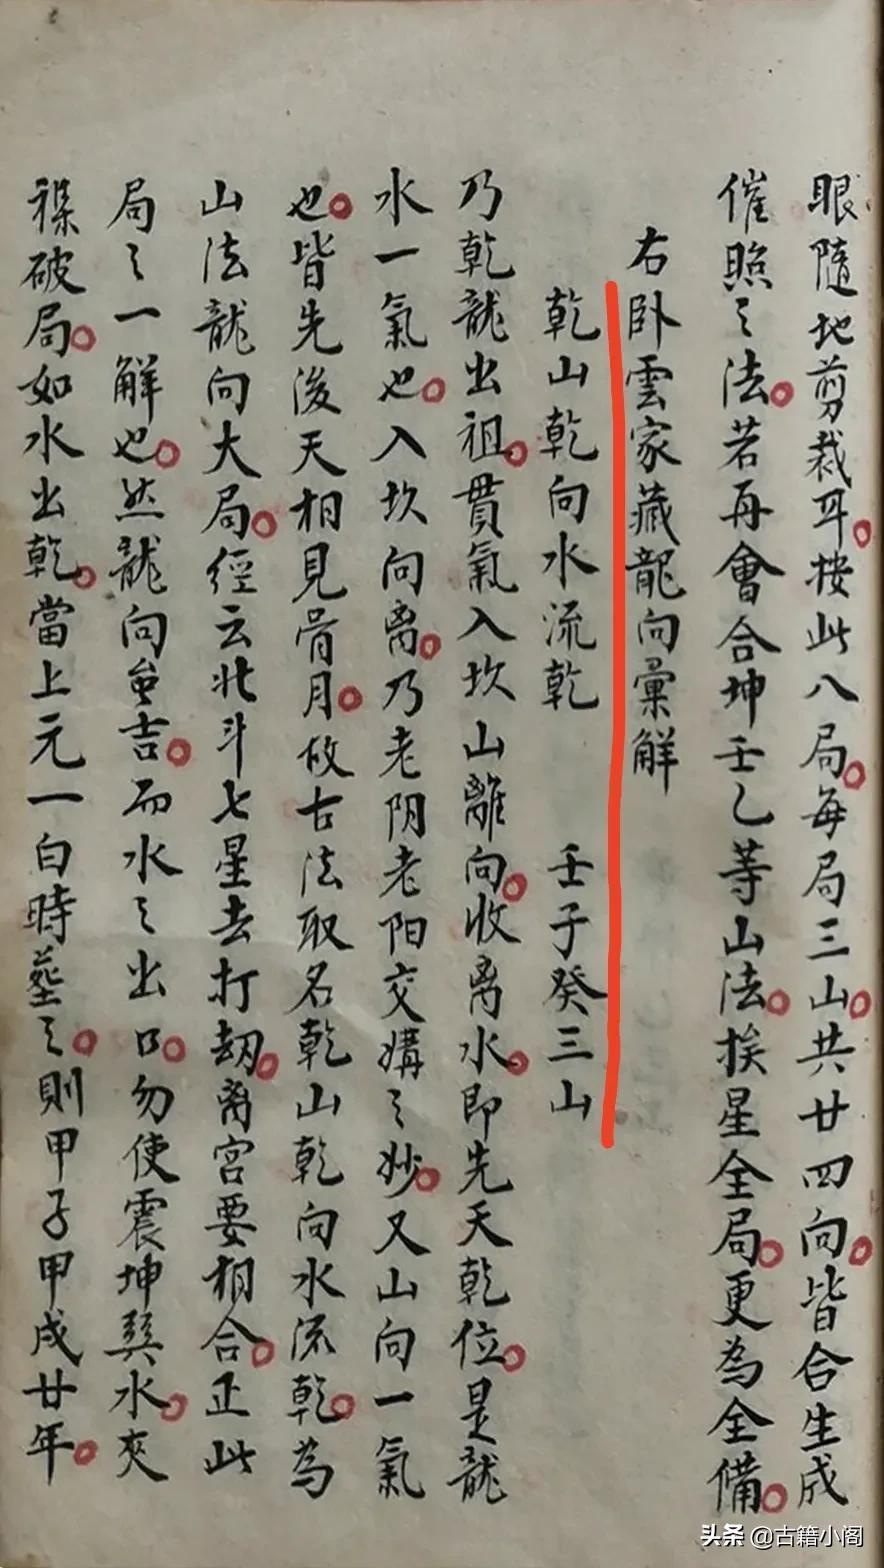 眼隨地剪裁耳按此八局每局三山共廿四向皆合生成
催照之法若再會合坤壬乙等山法挨星全局更為全備
右卧雲家藏龍向彙解
乾山乾向水流乾 壬子癸三山
乃乾龍出祖貫氣入坎山離向收离水即先天乾位是龍
水一氣也入坎向离乃老阴老阳交媾之妙又山向一氣
也皆先後天相見骨月故古法取名乾山乾向水流乾為
山法龍向大局經云北斗七星去打刼离宮要相合正此
局之一解也然龍向皆吉而水之出口勿使震坤巽水夾
襍破局如水出乾當上元一白時塟之則甲子甲戌廿年
头条 @古籍小阁